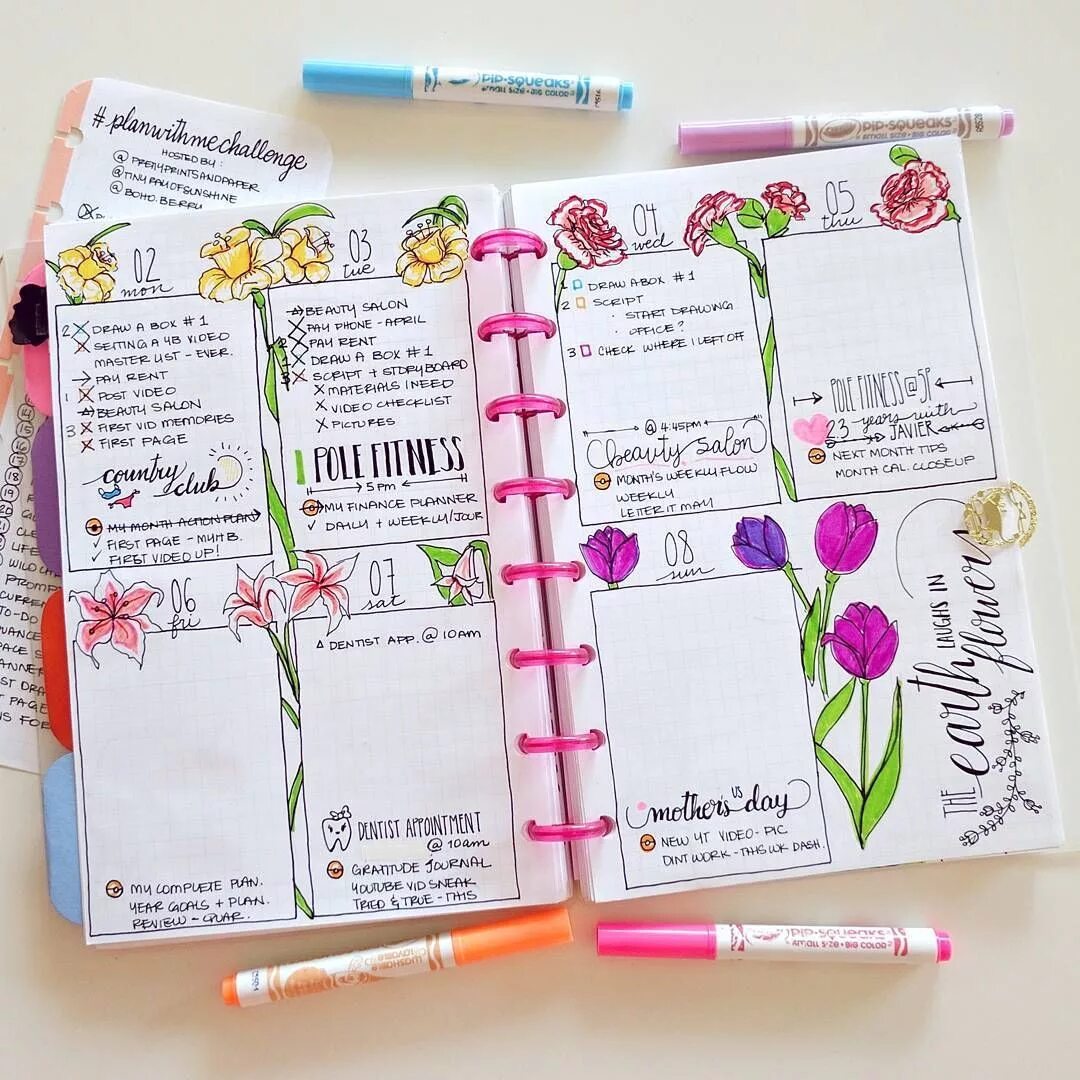 #planwithmechallenge
HOSTED BY:
@PRETTYPRINTSANDPAPER
@TINYRAYOFSUNSHINE
@BOHO.BERRY
02
mon
2 DRAW A BOX #1
SETTING A 4B VIDEO
MASTER LIST - EVER.
→ PAY RENT
1 POST VIDEO
BEAUTY SALON
3 FIRST VID MEMORIES
FIRST PAGE
country
club
MY MONTH ACTION PLAN
✓ FIRST PAGE - MYHB.
✓ FIRST VIDEO UP!
03
tue
BEAUTY SALON
PAY PHONE - APRIL
PAY RENT
DRAW A BOX #1
SCRIPT + STORYBOARD
X MATERIALS I NEED
X VIDEO CHECKLIST
X PICTURES
POLE FITNESS
5pm
MY FINANCE PLANNER
✓ DAILY + WEEKLY/JOUR
04
wed
1 DRAW A BOX #1
2 SCRIPT
· START DRAWING
· OFFICE?
3 CHECK WHERE I LEFT OFF
@ 4:45pm
beauty salon
MONTH'S WEEKLY FLOW
WEEKLY
LETTER IT MAY
05
thu
POLE FITNESS @ 5P
23 years with
JAVIER
NEXT MONTH TIPS
MONTH CAL. CLOSEUP
06
fri
MY COMPLETE PLAN.
YEAR GOALS + PLAN.
REVIEW - QUAR.
07
sat
Δ DENTIST APP. @ 10AM
DENTIST APPOINTMENT
@ 10am
GRATITUDE JOURNAL
YOUTUBE VID SNEAK
TRIED & TRUE - THIS
08
sun
mother's day
US
NEW YT VIDEO - PIC
DINT WORK - THIS WK DASH.
THE earth LAUGHS IN
flowers
PIP-SQUEAKS
SMALL SIZE • BIG COLOR
PIP-SQUEAKS
SMALL SIZE • BIG COLOR
WASHABLE
PIP-SQUEAKS
SMALL SIZE • BIG COLOR